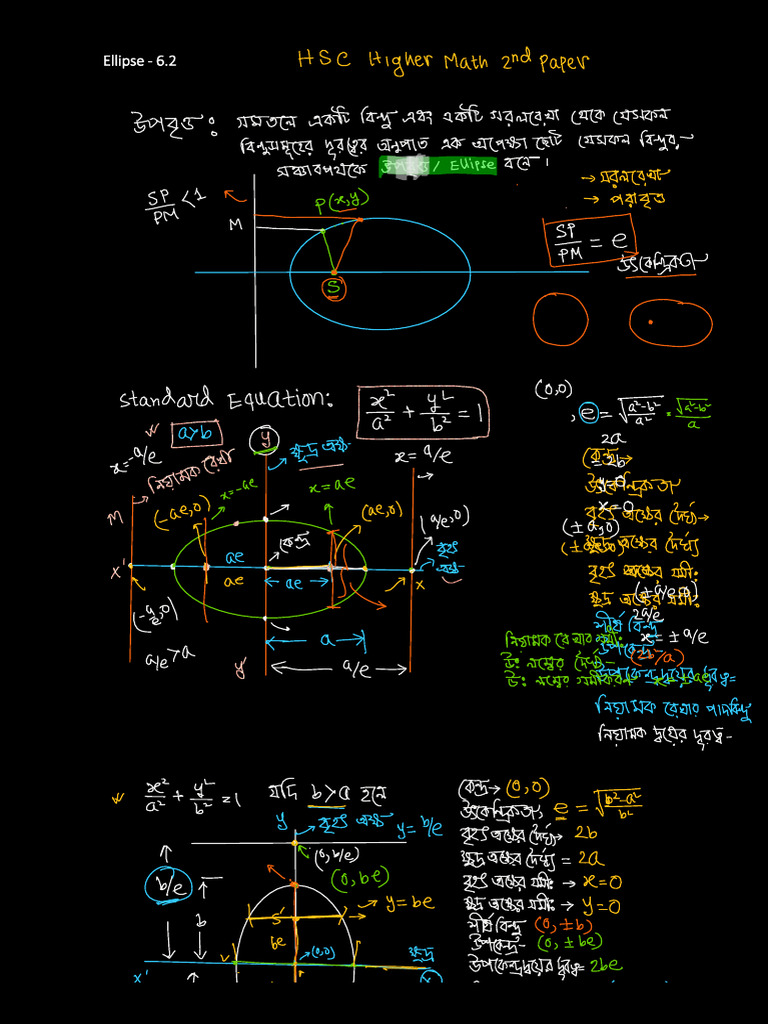 Ellipse - 6.2
HSC Higher Math 2nd Paper
উপবৃত্ত : সমতলে একটি বিন্দু এবং একটি সরলরেখা থেকে যেসকল
বিন্দুসমূহের দূরত্বের অনুপাত এক অপেক্ষা ছোট সেসকল বিন্দুর
সঞ্চারপথকে উপবৃত্ত / Ellipse বলে।
→ সরলরেখা
→ পরাবৃত্ত
SP/PM < 1
P(x,y)
M
S
SP/PM = e
উৎকেন্দ্রিকতা
Standard Equation: x²/a² + y²/b² = 1
(0,0)
, e = √((a²-b²)/a²) = √(a²-b²)/a
a>b
x = -a/e
নিয়ামক রেখা
y
ক্ষুদ্র অক্ষ
x = a/e
x = -ae
x = ae
M
(-ae,0)
(ae,0)
(a/e,0)
কেন্দ্র
বৃহৎ অক্ষ
x'
ae
ae
ae
x
(-a/e,0)
a
a/e > a
y'
a/e
2a
2b
কেন্দ্র →
উৎকেন্দ্রিকতা
y=0
x=0
বৃহৎ অক্ষের দৈর্ঘ্য →
(±a,0)
ক্ষুদ্র অক্ষের দৈর্ঘ্য
(±ae,0)
বৃহৎ অক্ষের সমী:
ক্ষুদ্র অক্ষের সমী:
2a/e
শীর্ষ বিন্দু
নিয়ামক রেখার সমী:
x = ± a/e
উপকেন্দ্র
উ: লম্বের দৈর্ঘ্য -
(2b²/a)
উ: লম্বের সমীকরণ
উপকেন্দ্রদ্বয়ের দূরত্ব =
নিয়ামক রেখার পাদবিন্দু
নিয়ামক দ্বয়ের দূরত্ব -
x²/a² + y²/b² = 1 যদি b>a হলে
y
বৃহৎ অক্ষ
y = b/e
(0, b/e)
(0, be)
b/e
b
S'
y = be
be
(0,0)
ক্ষুদ্র
x'
x
কেন্দ্র → (0,0)
উৎকেন্দ্রিকতা, e = √((b²-a²)/b²)
বৃহৎ অক্ষের দৈর্ঘ্য → 2b
ক্ষুদ্র অক্ষের দৈর্ঘ্য = 2a
বৃহৎ অক্ষের সমী: → x=0
ক্ষুদ্র অক্ষের সমী: → y=0
শীর্ষ বিন্দু (0, ±b)
উপকেন্দ্র - (0, ±be)
উপকেন্দ্রদ্বয়ের দূরত্ব = 2be